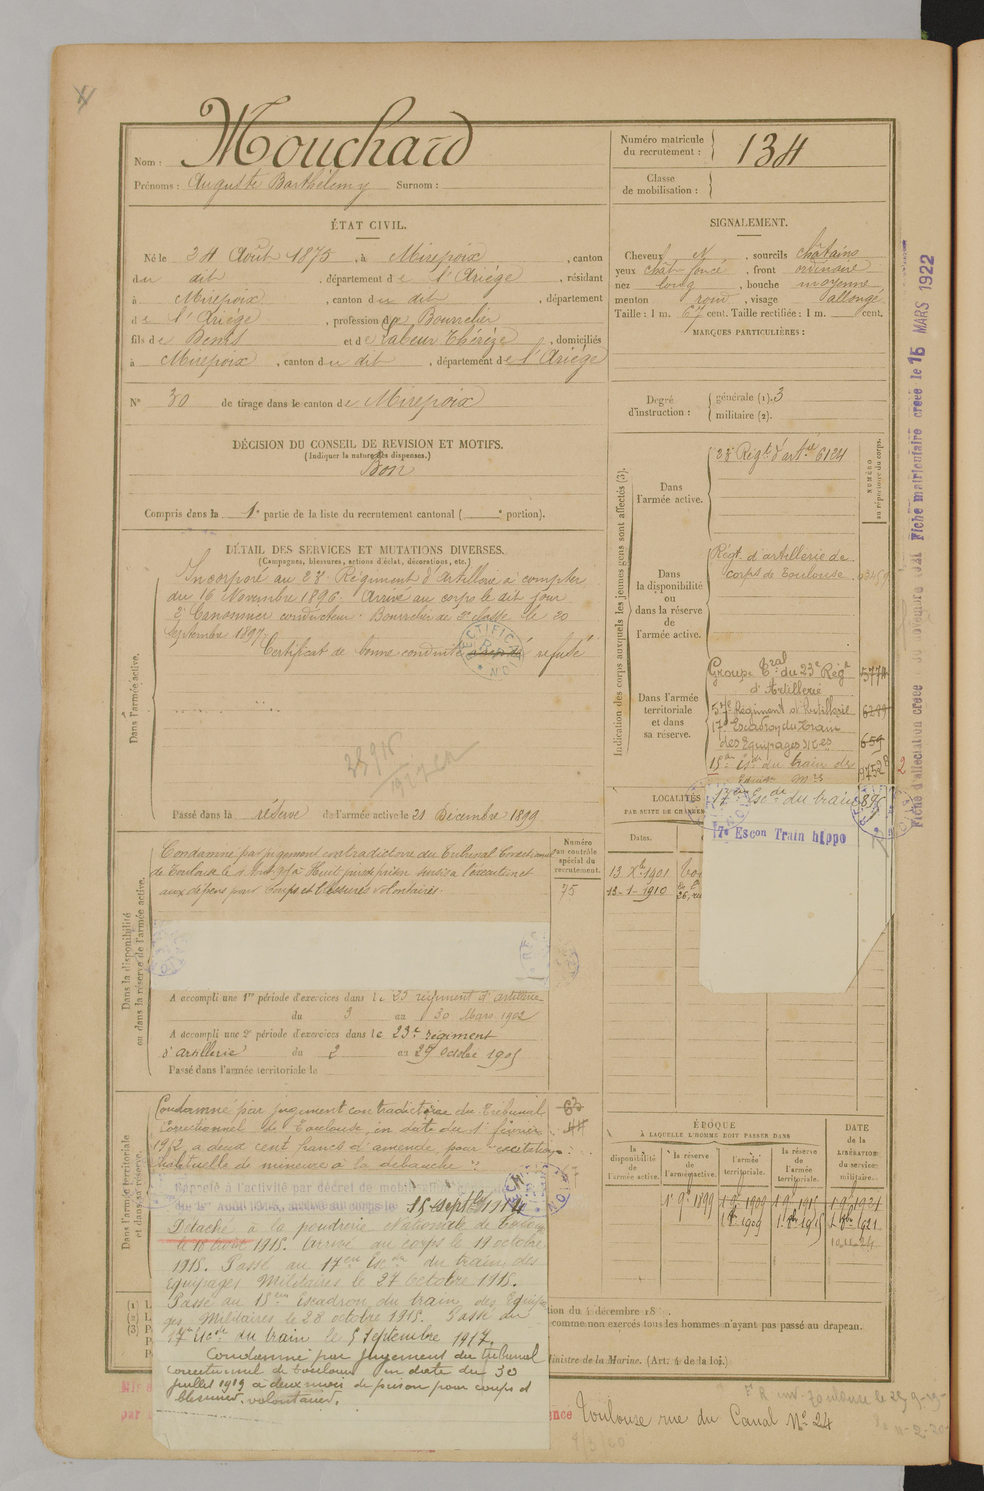 Nom : Mouchard
Prénoms : Auguste Barthélemy Surnom :
Numéro matricule
du recrutement : 134
Classe
de mobilisation :
ÉTAT CIVIL.
Né le 24 Août 1875, à Mirepoix, canton
du dit, département de l'Ariège, résidant
à Mirepoix, canton du dit, département
de l'Ariège, profession de Bourrelier
fils de Denis et de Labeur Thérèze, domiciliés
à Mirepoix, canton du dit, département de l'Ariège
N° 30 de tirage dans le canton de Mirepoix
DÉCISION DU CONSEIL DE REVISION ET MOTIFS.
(Indiquer la nature des dispenses.)
Bon
Compris dans la 1e partie de la liste du recrutement cantonal ( e portion).
SIGNALEMENT.
Cheveux N, sourcils châtains
yeux chât. foncé, front ordinaire
nez long, bouche moyenne
menton rond, visage allongé
Taille : 1 m. 67 cent. Taille rectifiée : 1 m. cent.
MARQUES PARTICULIÈRES :
Degré
d'instruction :
générale (1). 3
militaire (2).
DÉTAIL DES SERVICES ET MUTATIONS DIVERSES.
(Campagnes, blessures, actions d'éclat, décorations, etc.)
Dans l'armée active.
Incorporé au 23e Régiment d'artillerie à compter
du 16 Novembre 1896. Arrivé au corps le dit jour
2e Canonnier conducteur. Bourrelier de 2e classe le 20
Septembre 1897.
Certificat de bonne conduite refusé
RECTIFICATION
Passé dans la réserve de l'armée active le 21 Décembre 1899
Indication des corps auxquels les jeunes gens sont affectés (3).
NUMÉRO
au répertoire du corps.
Dans
l'armée active.
23e Régt d'artie 6124
Dans
la disponibilité
ou
dans la réserve
de
l'armée active.
Régt d'artillerie de
corps de Toulouse
Dans l'armée
territoriale
et dans
sa réserve.
Groupe Tral du 23e Régt
d'Artillerie 5774
57e Régiment d'Artillerie 6289
17e Escadron du Train
des Equipages Mres 659
18e Esc. du train des
Equip. Mres 1752
17e Escon du train
17e Escon Train hippo
LOCALITÉS
PAR SUITE DE CHANGE
Dates.
13 Xbre 1901
12-1-1910
Dans la disponibilité
ou dans la réserve de l'armée active.
Numéro
au contrôle
spécial du
recrutement.
75
Condamné par jugement contradictoire du Tribunal Correctionnel
de Toulouse
aux dépens pour coups et blessures volontaires
A accompli une 1re période d'exercices dans le 23 régiment d'artillerie
du 3 au 30 Mars 1902
A accompli une 2e période d'exercices dans le 23e régiment
d'Artillerie du 2 au 29 Octobre 1905
Passé dans l'armée territoriale le
Dans l'armée territoriale
et dans sa réserve.
Condamné par jugement contradictoire du Tribunal
Correctionnel de Toulouse, en date du 1er février
1912, à deux cent francs d'amende, pour "excitation
habituelle de mineures à la débauche".
Rappelé à l'activité par décret de mobilisation
du 1er Août 1914, arrivé au corps le 15 Septbre 1914
Détaché à la poudrerie Nationale de Toulouse
le 18 Août 1915. Arrivé au corps le 11 octobre
1915. Passé au 17eme Escon du train des
Equipages Militaires le 27 Octobre 1915.
Passé au 18eme Escadron du train des Equipa
ges Militaires le 28 octobre 1915. Passé au
17e Escon du train le 5 Septembre 1917.
Condamné par jugement du tribunal
correctionnel de Toulouse en date du 30
juillet 1919 à deux mois de prison pour coups et
blessures volontaires.
ÉPOQUE
À LAQUELLE L'HOMME DOIT PASSER DANS
la
disponibilité
de
l'armée active.
la réserve
de
l'armée active.
l'armée
territoriale.
la réserve
de
l'armée
territoriale.
DATE
de la
LIBÉRATION
du service
militaire.
1er 9bre 1899
tion du 4 décembre 18
comme non exercés tous les hommes n'ayant pas passé au drapeau.
Ministre de la Marine. (Art. 4 de la loi.)
Toulouse rue du Canal No 24
Fiche matriculaire créée le 15 MARS 1922